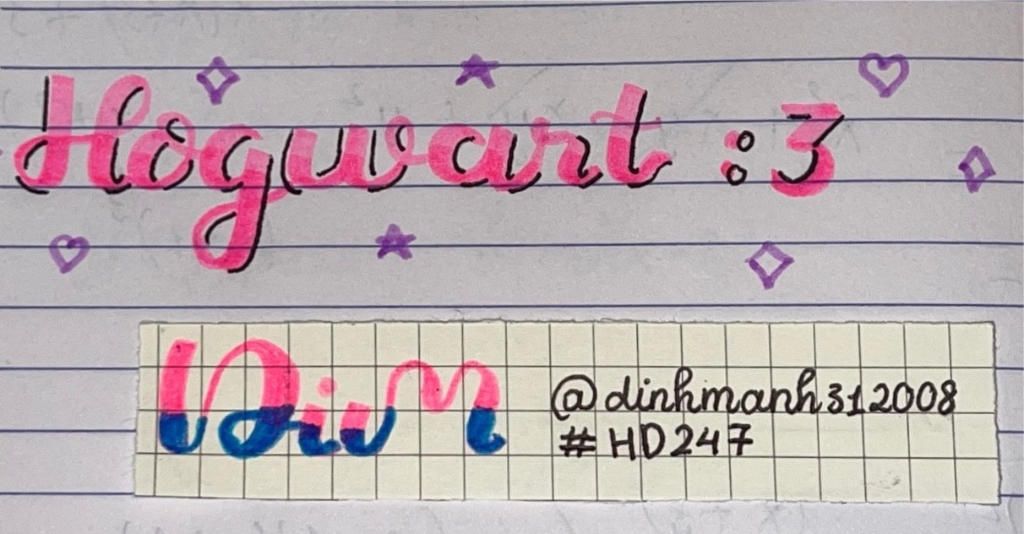 Hogwart :3
DiM
@dinhmanh312008
#HD247